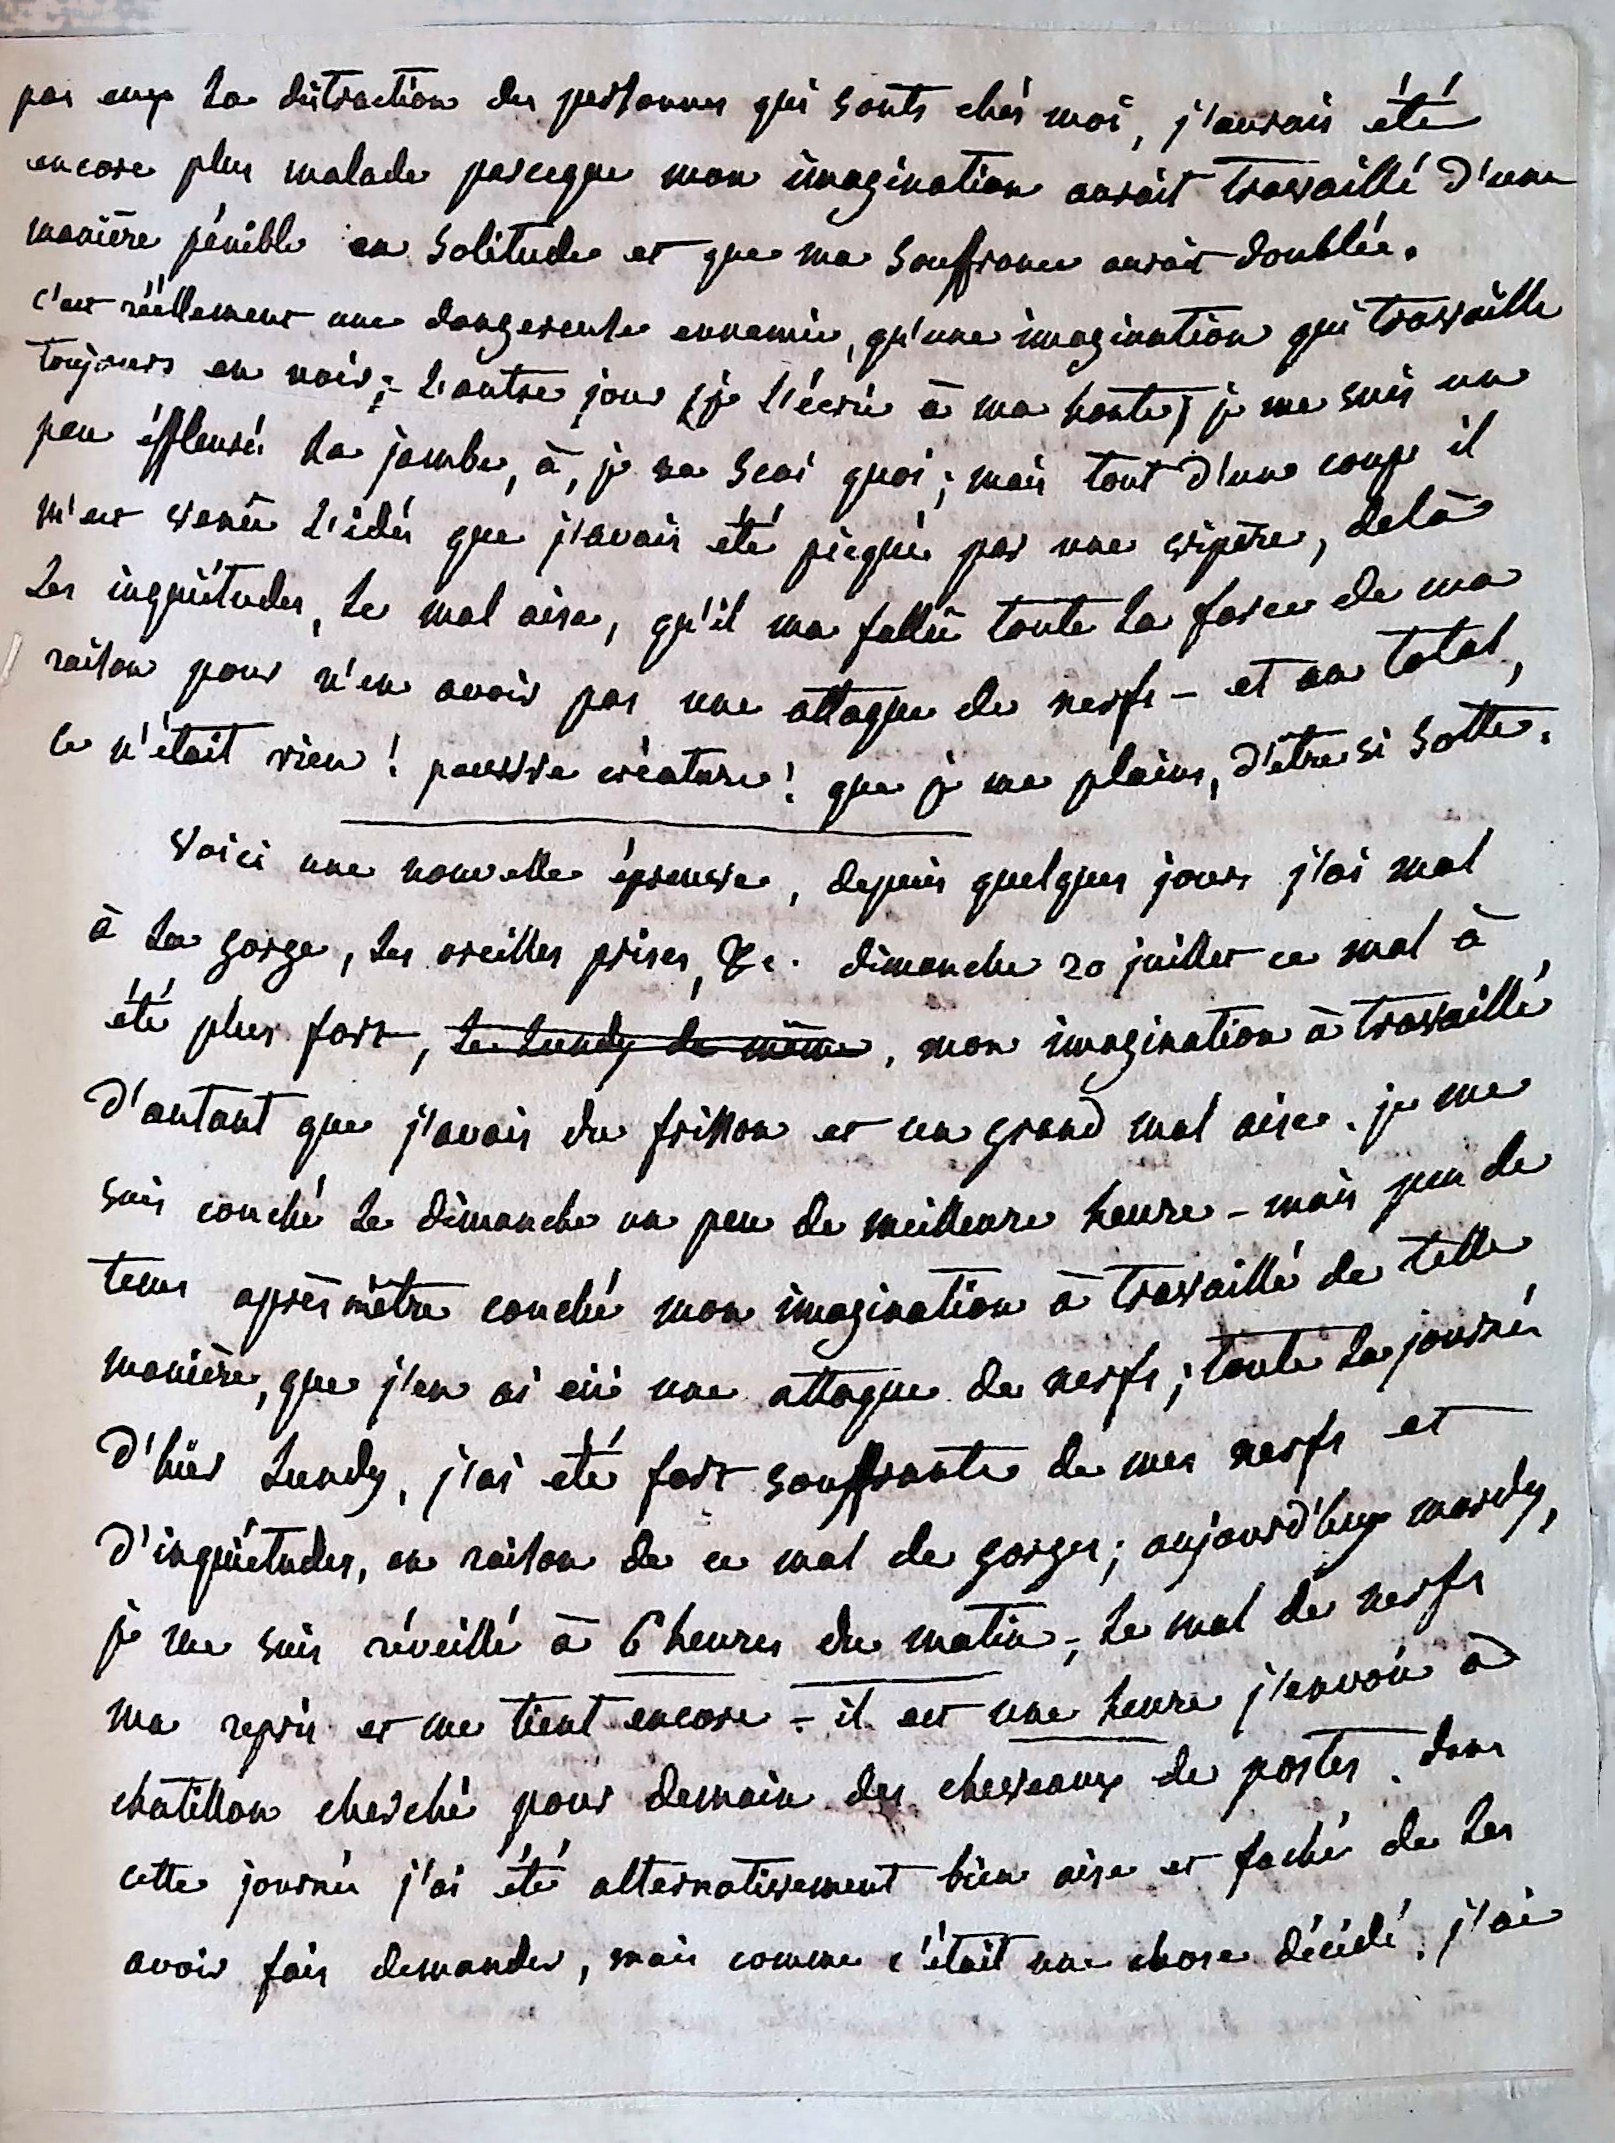 pas eus la distraction des personnes qui sonts chés moi, j'aurais été
encore plus malade parceque mon imagination aurait travaillé d'une
manière pénible en solitude et que ma souffrance aurait doublée.
c'est réellement une dangereuse ennemie, qu'une imagination qui travaille
toujours en noir; - l'autre jour (je l'écrie à ma honte) je me suis un
peu éffleuré la jambe, à, je ne scai quoi; mais tout d'un coup il
m'est venû l'idée que j'avais été picqué par une vipère, delà
les inquiétudes, le mal aise, qu'il ma fallû toute la force de ma
raison pour n'en avoir pas une attaque de nerfs - et au total,
ce n'était rien! pauvre créature! que je me plains, d'être si sotte.
voici une nouvelle épreuve, depuis quelques jours j'ai mal
à la gorge, les oreilles prises, &c. dimanche 20 juillet ce mal à
été plus fort, le lundy de même, mon imagination à travaillé
d'autant que j'avais du frisson et un grand mal aise. je me
suis couché le dimanche un peu de meilleure heure - mais peu de
tems après m'être couché mon imagination à travaillé de telle
manière, que j'en ai eû une attaque de nerfs; toute la journée
d'hier lundy, j'ai été fort souffrante de mes nerfs et
d'inquiétudes, en raison de ce mal de gorge; aujourd'huy mardy,
je me suis réveillé à 6 heures du matin; le mal de nerfs
ma repris et me tient encore - il est une heure j'envoie à
chatillon cherché pour demain des chevaux de postes. dans
cette journée j'ai été alternativement bien aise et faché de les
avoir fais demander, mais comme c'était une chose décidé, j'ai